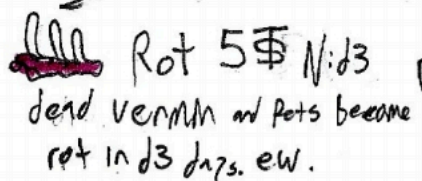 Rot 5$ N:d3
dead vermin and Pets become
rot in d3 days. ew.